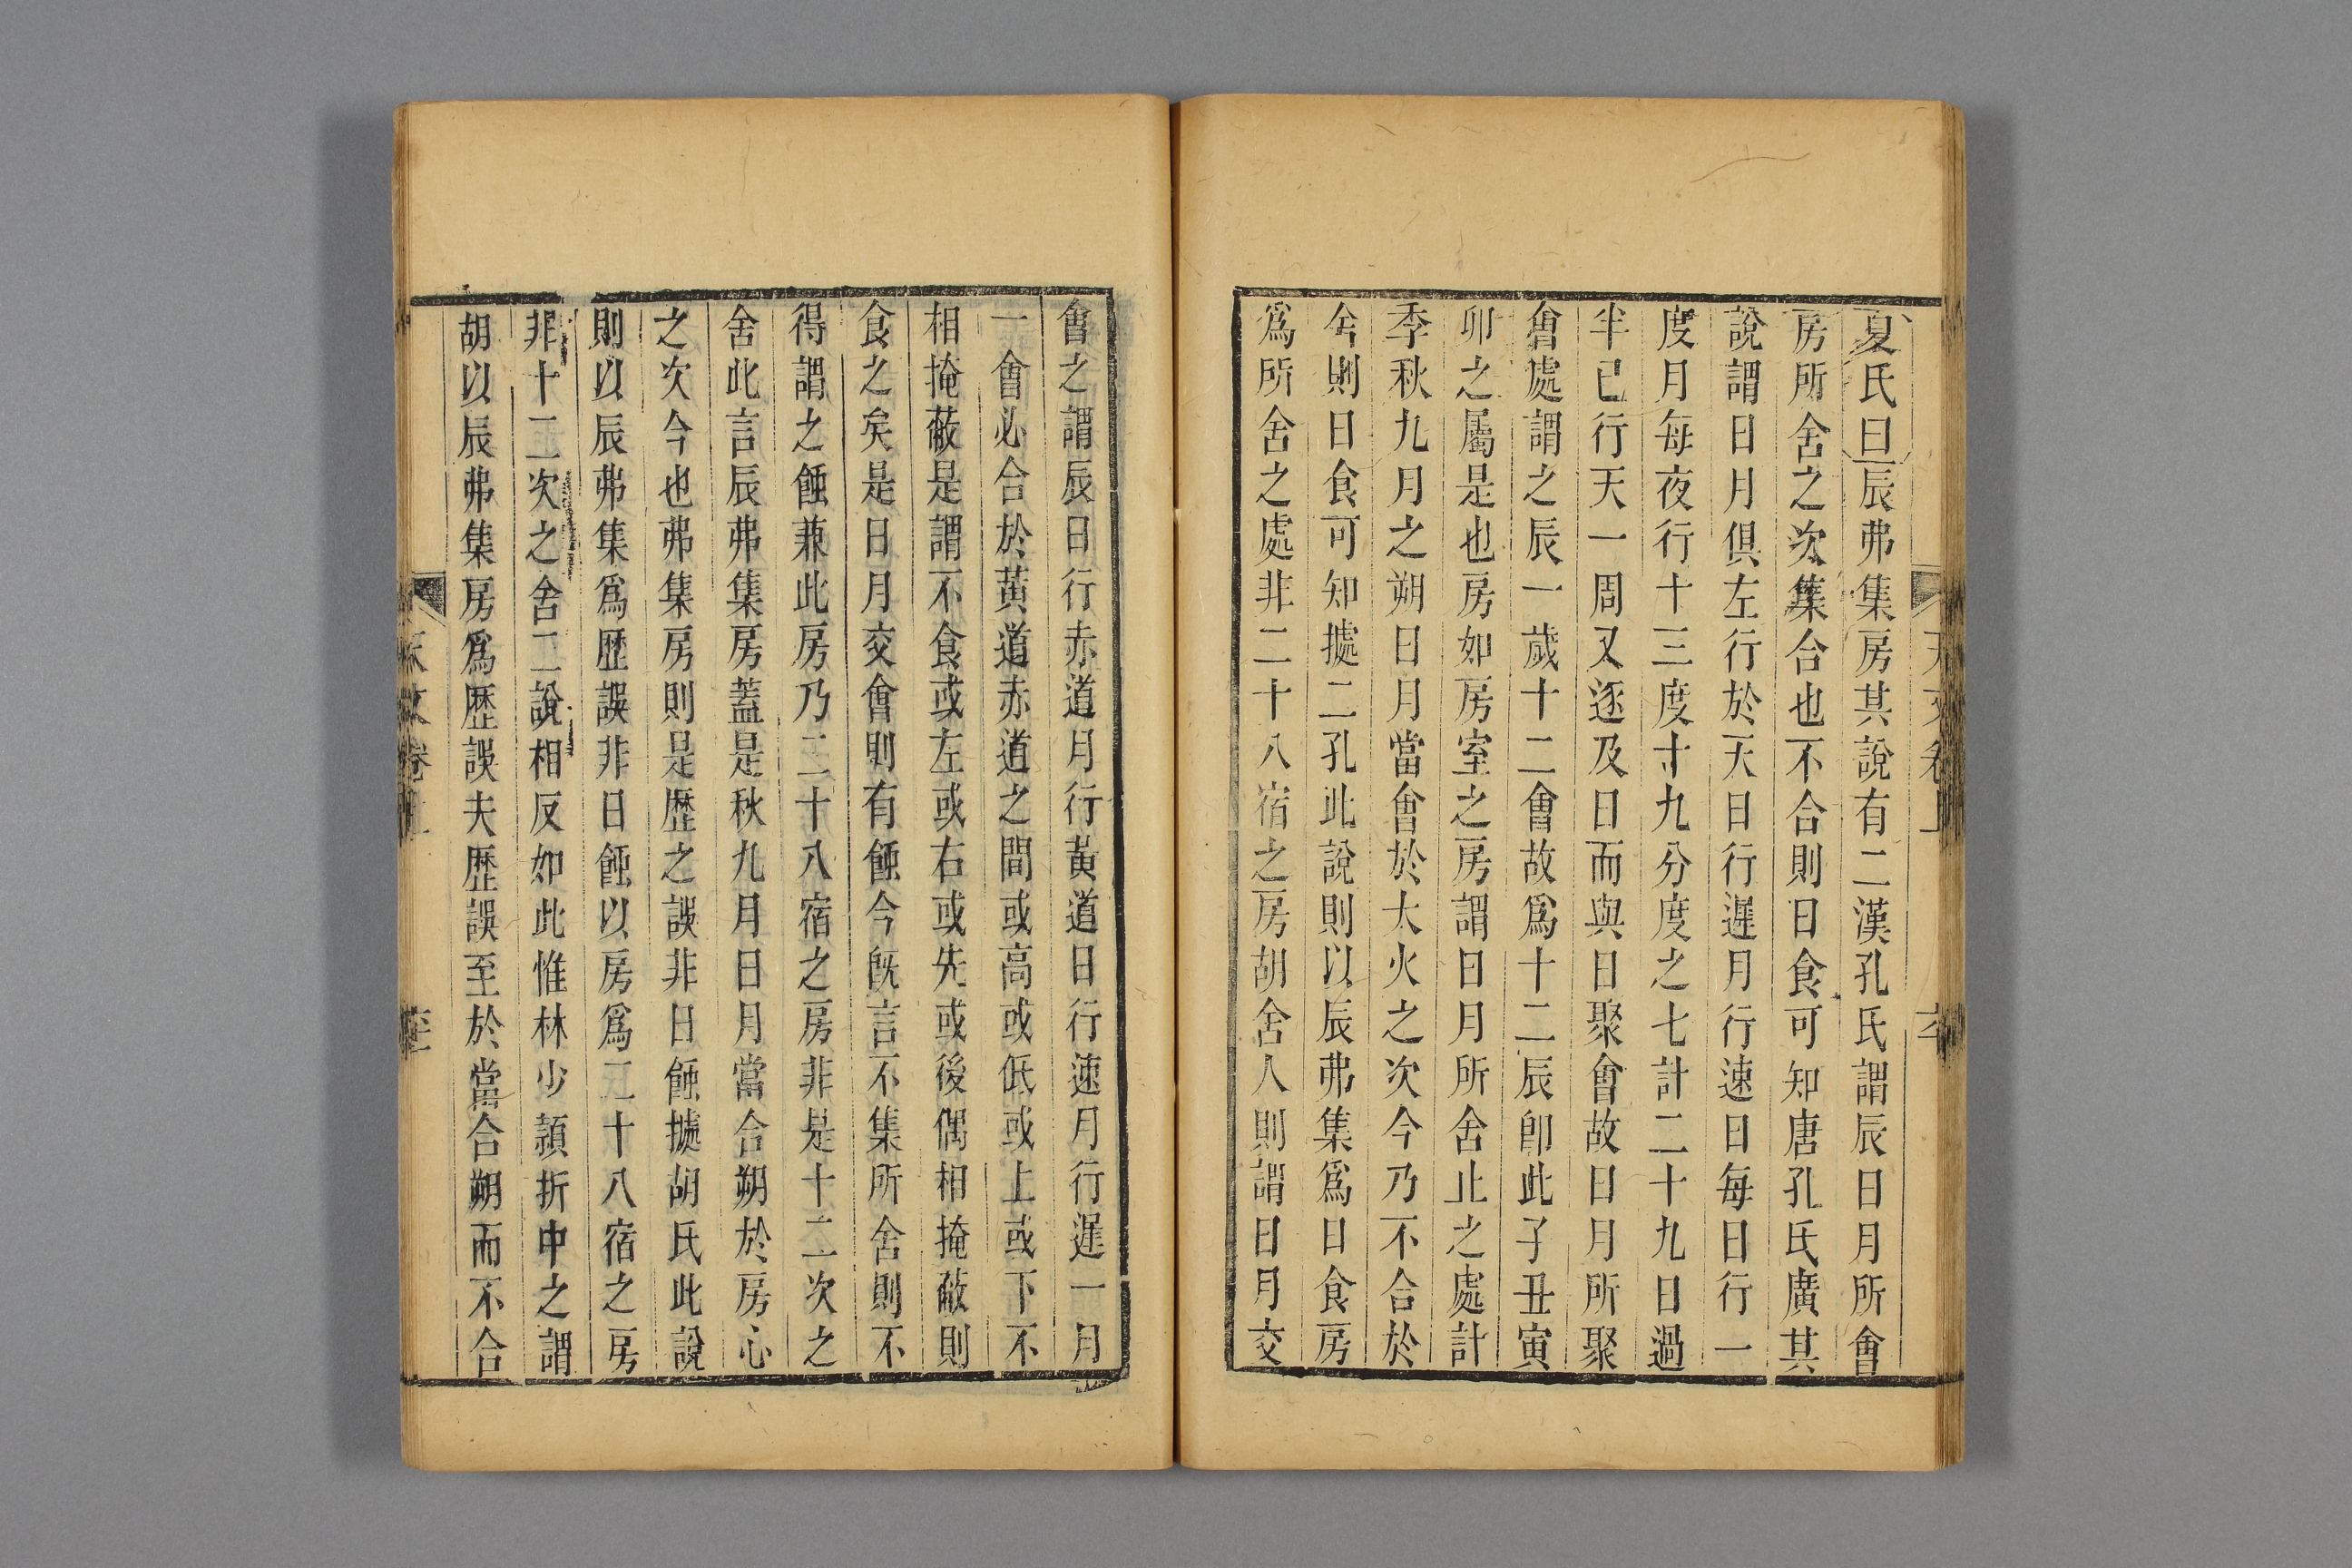 夏氏曰辰弗集房其說有二漢孔氏謂辰日月所會
房所舍之次集合也不合則日食可知唐孔氏廣其
說謂日月俱左行於天日行遲月行速日每日行一
度月每夜行十三度寸九分度之七計二十九日過
半已行天一周又逐及日而與日聚會故日月所聚
會處謂之辰一歲十二會故爲十二辰卽此子丑寅
卯之屬是也房如房室之房謂日月所舍止之處計
季秋九月之朔日月當會於大火之次今乃不合於
舍則日食可知據二孔此說則以辰弗集爲日食房
爲所舍之處非二十八宿之房胡舍人則謂日月交
會之謂辰日行赤道月行黃道日行速月行遲一月
一會必合於黃道赤道之間或高或低或上或下不
相掩蔽是謂不食或左或右或先或後偶相掩蔽則
食之矣是日月交會則有蝕今旣言不集所舍則不
得謂之蝕兼此房乃二十八宿之房非是十二次之
舍此言辰弗集房蓋是秋九月日月當合朔於房心
之次今也弗集房則是歷之誤非日蝕據胡氏此說
則以辰弗集爲歷誤非日蝕以房爲二十八宿之房
非十二次之舍二說相反如此惟林少頴折中之謂
胡以辰弗集房爲歷誤夫歷誤至於當合朔而不合
天文卷上